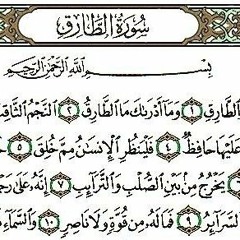 سُورَةُ الطَّارِقِ
بِسْمِ ٱللَّهِ ٱلرَّحْمَٰنِ ٱلرَّحِيمِ
ٱلطَّارِقِ ١ وَمَآ أَدْرَىٰكَ مَا ٱلطَّارِقُ ٢ ٱلنَّجْمُ ٱلثَّاقِ
عَلَيْهَا حَافِظٌ ٤ فَلْيَنظُرِ ٱلْإِنسَٰنُ مِمَّ خُلِقَ ٥
يَخْرُجُ مِنۢ بَيْنِ ٱلصُّلْبِ وَٱلتَّرَآئِبِ ٧ إِنَّهُۥ عَلَىٰ رَج
ٱلسَّرَآئِرُ ٩ فَمَا لَهُۥ مِن قُوَّةٍ وَلَا نَاصِرٍ ١٠ وَٱلسَّمَآءِ